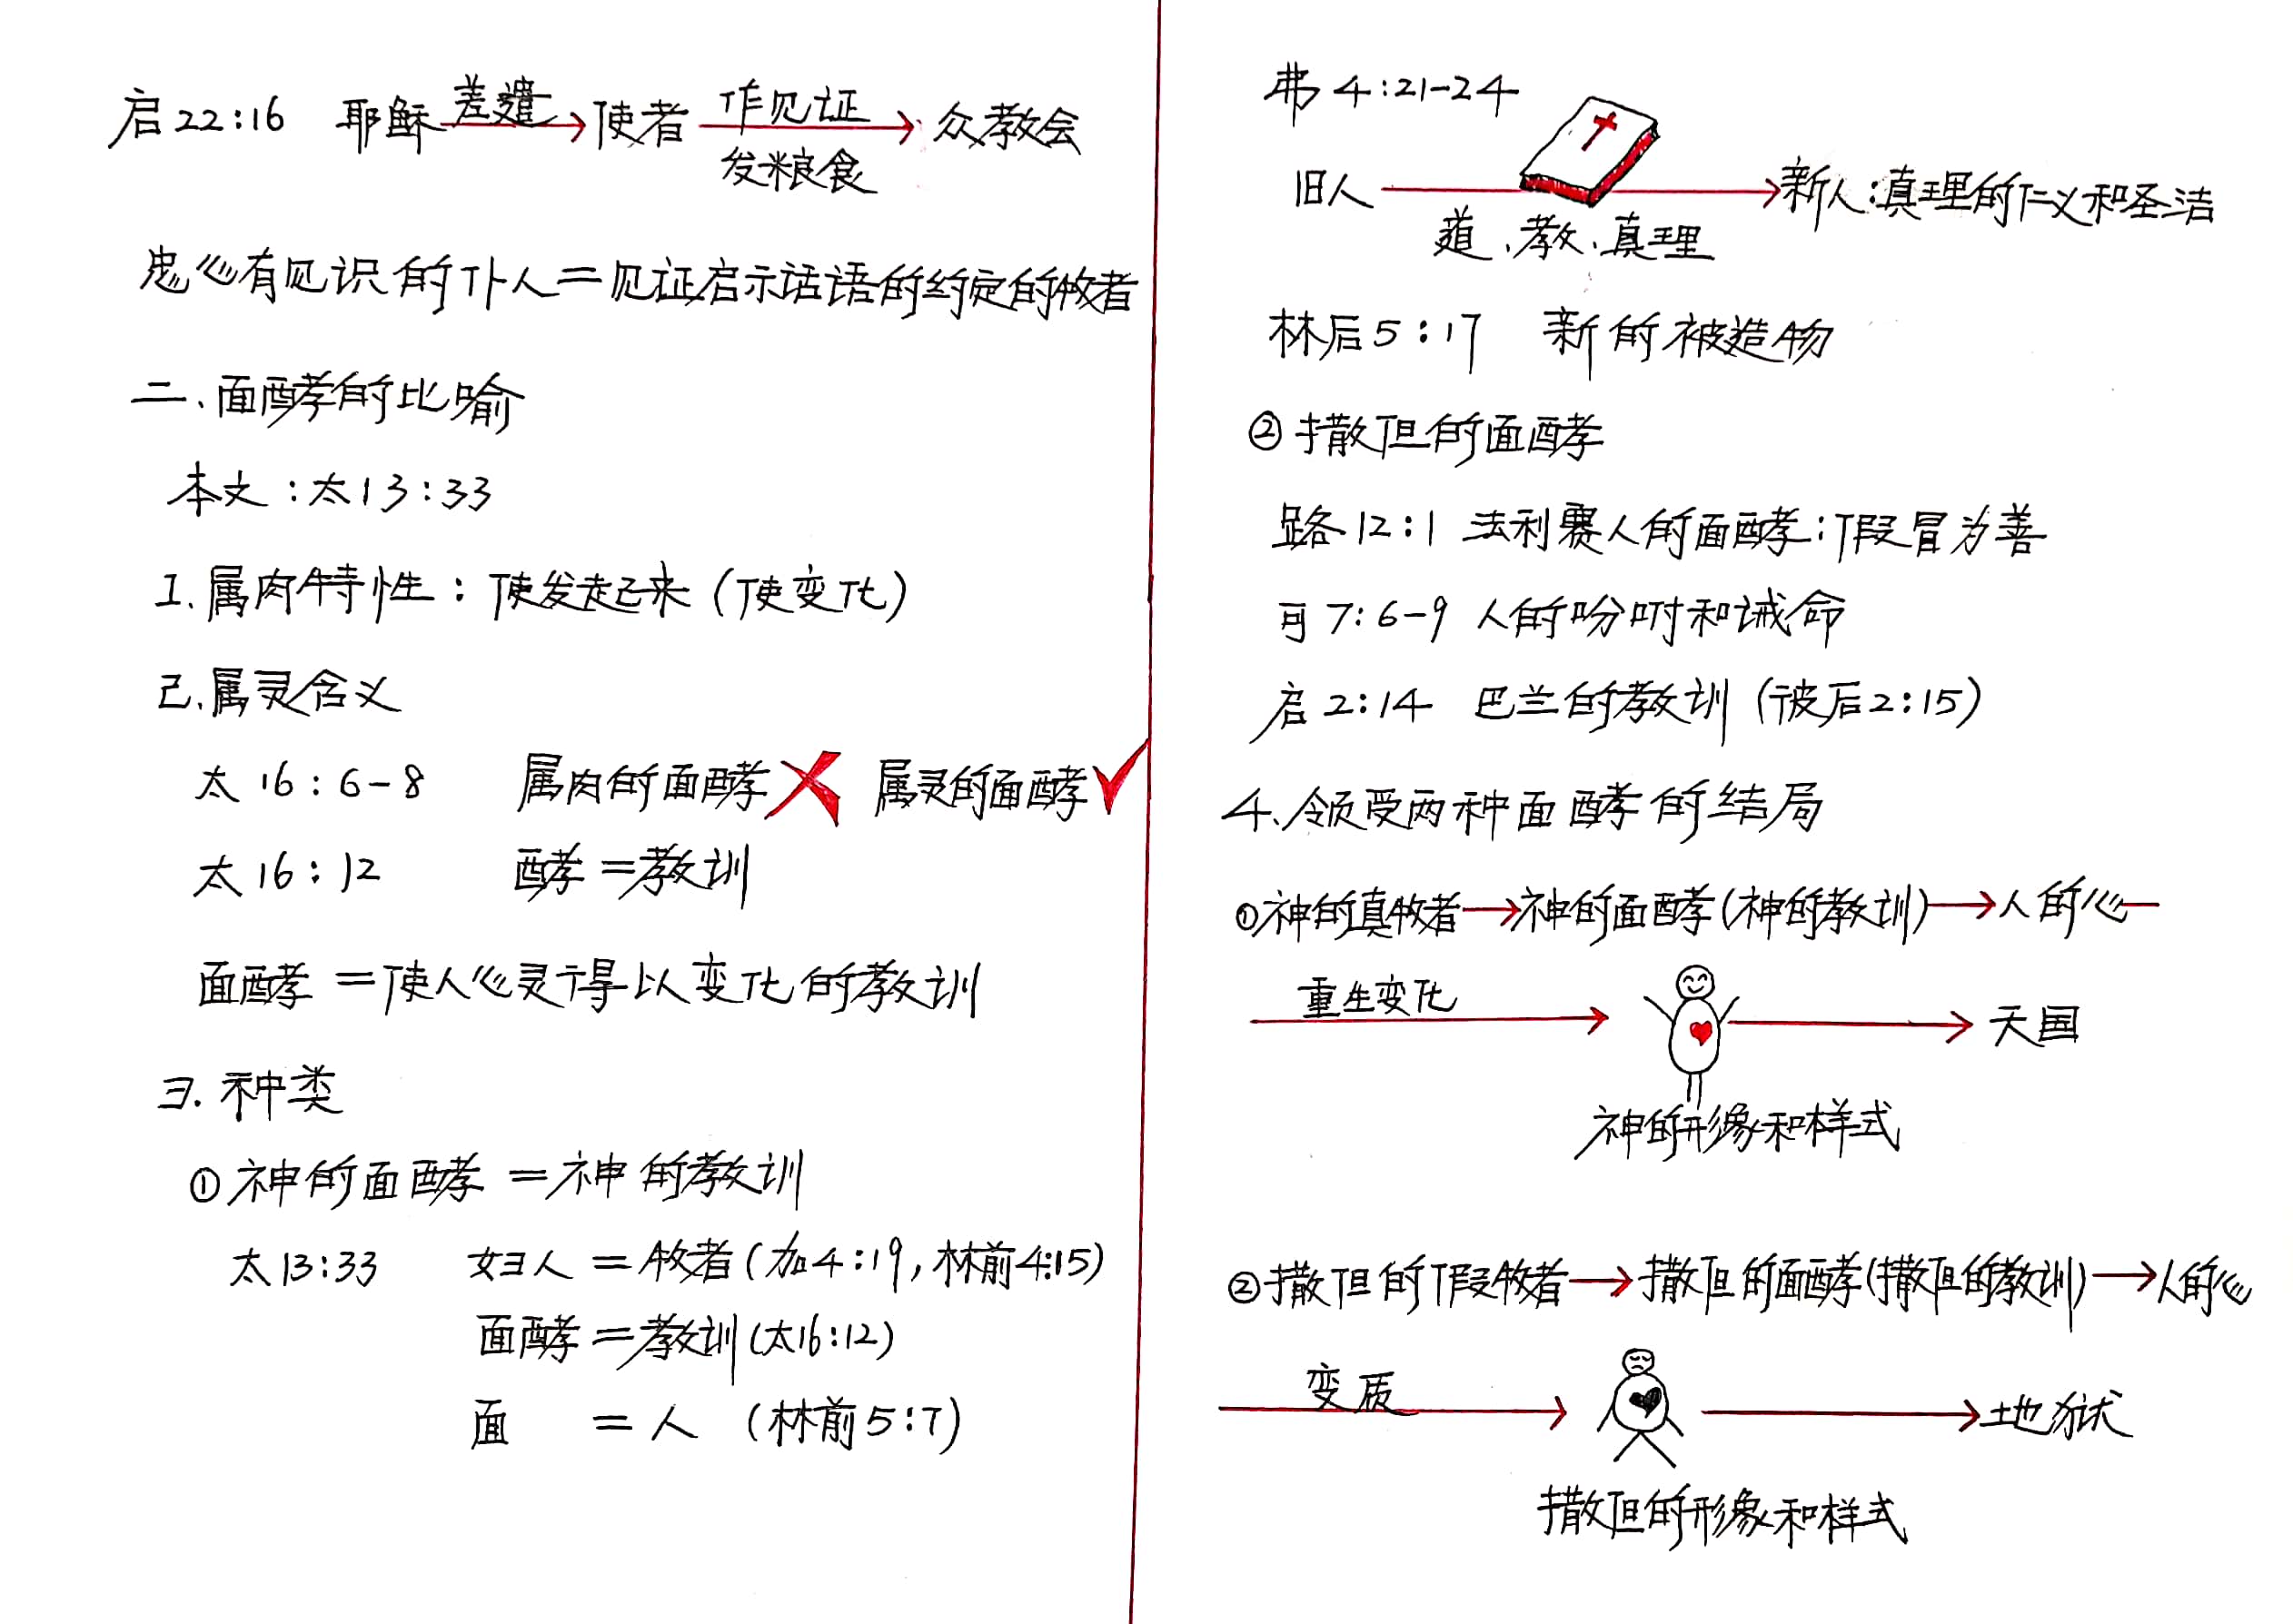 启22:16 耶稣 差遣 使者 作见证 众教会
发粮食
忠心有见识的仆人=见证启示话语的约定的牧者
二、面酵的比喻
本文:太13:33
1.属肉特性:使发起来(使变化)
2.属灵含义
太16:6-8 属肉的面酵 属灵的面酵
太16:12 酵=教训
面酵=使人心灵得以变化的教训
3.种类
①神的面酵=神的教训
太13:33 妇人=牧者(加4:19,林前4:15)
面酵=教训(太16:12)
面 =人 (林前5:7)
弗4:21-24
旧人 新人:真理的仁义和圣洁
道、教、真理
林后5:17 新的被造物
②撒但的面酵
路12:1 法利赛人的面酵:假冒为善
可7:6-9 人的吩咐和诫命
启2:14 巴兰的教训(彼后2:15)
4、领受两种面酵的结局
①神的真牧者→神的面酵(神的教训)→人的心
重生变化 天国
神的形像和样式
②撒但的假牧者→撒但的面酵(撒但的教训)→人的心
变质 地狱
撒但的形像和样式